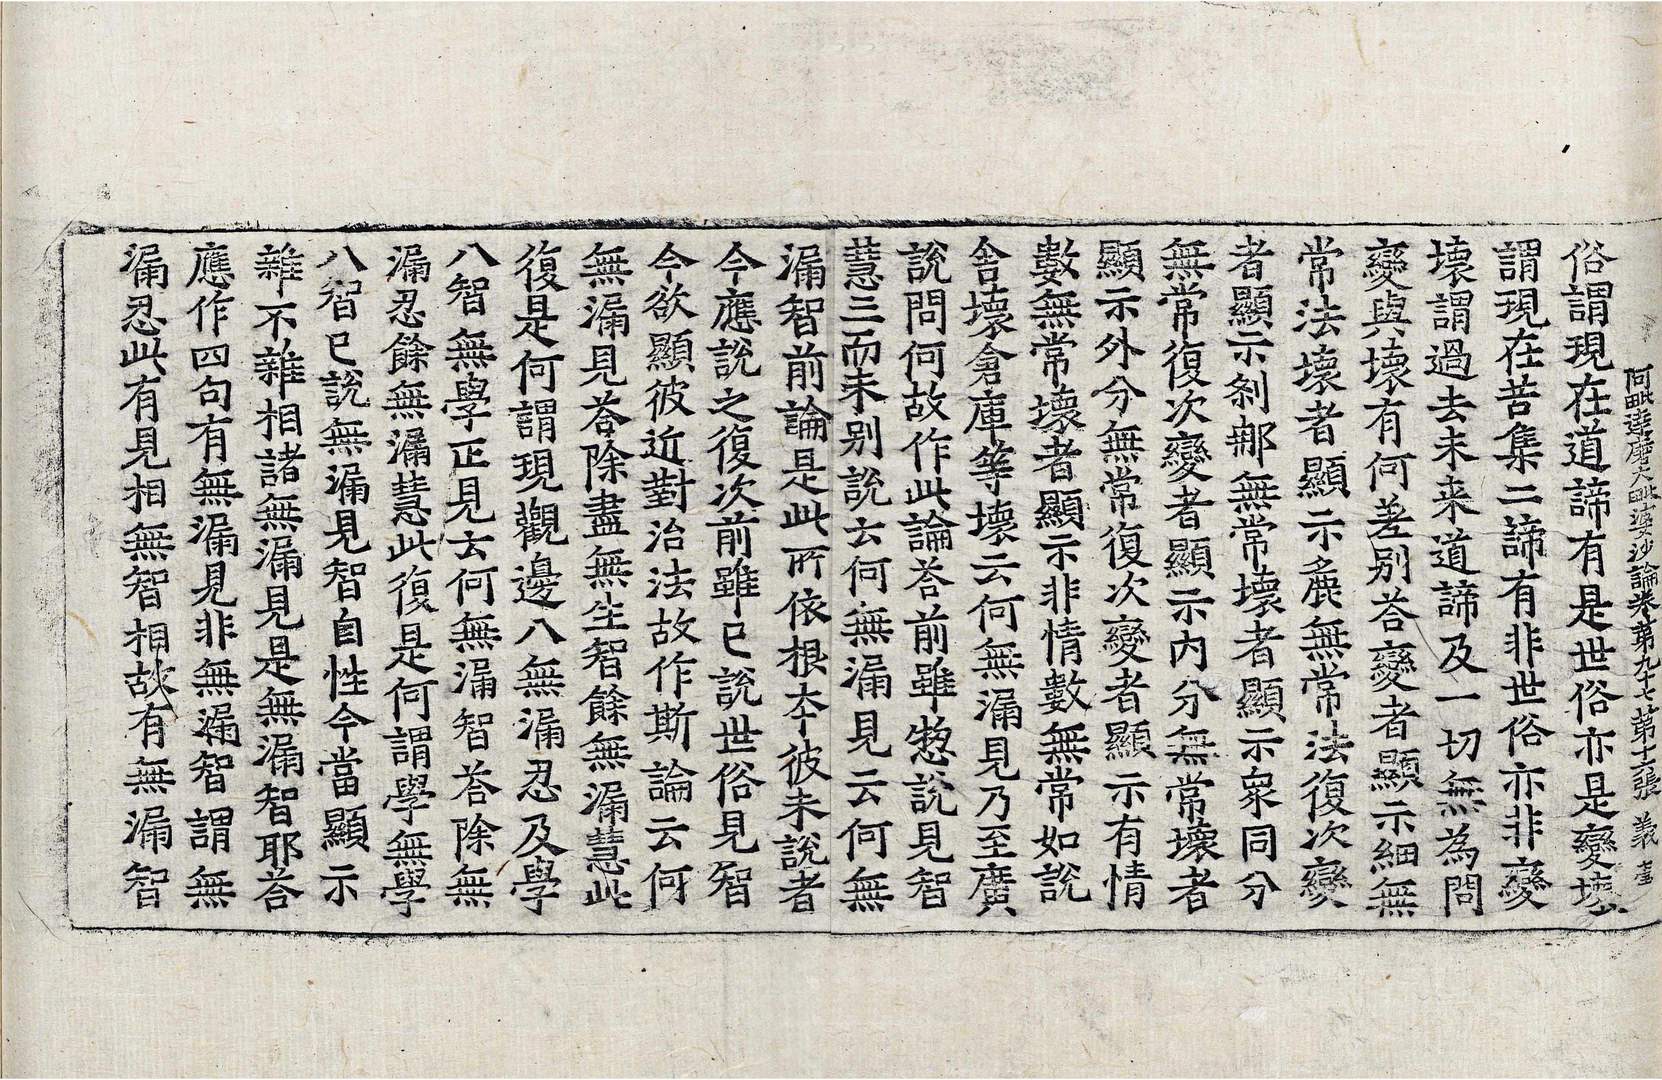 阿毗達磨大毗婆沙論卷第九十七 第十二張 義
俗謂現在道諦有是世俗亦是變壞
謂現在苦集二諦有非世俗亦非變
壞謂過去未来道諦及一切無為問
變與壞有何差別荅變者顯示細無
常法壞者顯示麁無常法復次變
者顯示刹那無常壞者顯示衆同分
無常復次變者顯示内分無常壞者
顯示外分無常復次變者顯示有情
數無常壞者顯示非情數無常如說
舍壞倉庫等壞云何無漏見乃至廣
說問何故作此論荅前雖惣說見智
慧三而未別說云何無漏見云何無
漏智前論是此所依根本彼未說者
今應說之復次前雖已說世俗見智
今欲顯彼近對治法故作斯論云何
無漏見荅除盡無生智餘無漏慧此
復是何謂現觀邊八無漏忍及學
八智無學正見云何無漏智荅除無
漏忍餘無漏慧此復是何謂學無學
八智已說無漏見智自性今當顯示
雜不雜相諸無漏見是無漏智耶荅
應作四句有無漏見非無漏智謂無
漏忍此有見相無智相故有無漏智